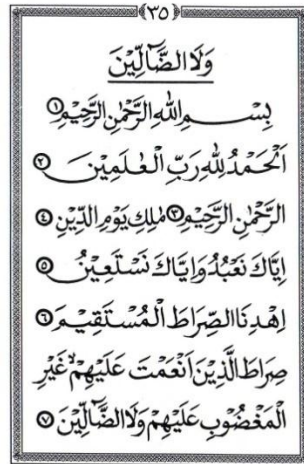 ٣٥
وَلَا الضَّآلِّيْنَ
بِسْمِ اللهِ الرَّحْمٰنِ الرَّحِيْمِ ١
اَلْحَمْدُ لِلّٰهِ رَبِّ الْعٰلَمِيْنَ ٢
الرَّحْمٰنِ الرَّحِيْمِ ٣ مٰلِكِ يَوْمِ الدِّيْنِ ٤
اِيَّاكَ نَعْبُدُ وَاِيَّاكَ نَسْتَعِيْنُ ٥
اِهْدِنَا الصِّرَاطَ الْمُسْتَقِيْمَ ٦
صِرَاطَ الَّذِيْنَ اَنْعَمْتَ عَلَيْهِمْ ۙ غَيْرِ
الْمَغْضُوْبِ عَلَيْهِمْ وَلَا الضَّآلِّيْنَ ٧